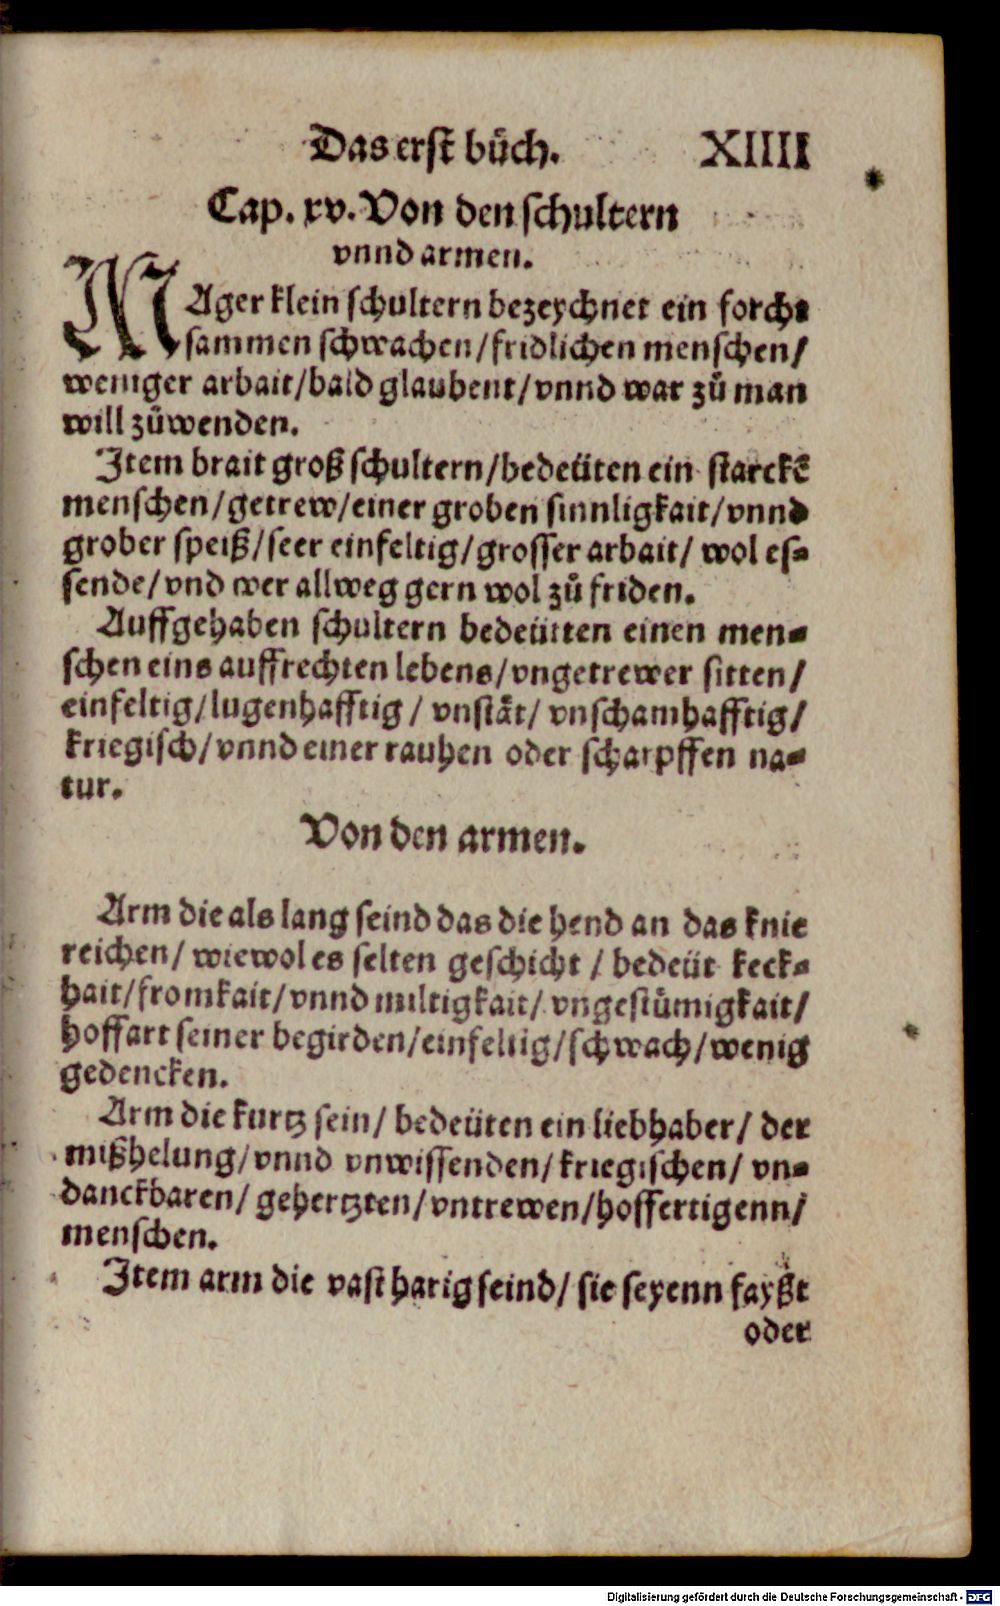 Das erst bůch. XIIII
Cap. xv. Von den schultern
vnnd armen.
MAger klein schultern bezeychnet ein forcht
sammen schwachen/fridlichen menschen/
weniger arbait/bald glaubent/vnnd war zů man
will zůwenden.
Item brait groß schultern/bedeüten ein starckē
menschen/getrew/einer groben sinnligkait/vnnd
grober speiß/seer einfeltig/grosser arbait/ wol es-
sende/vnd wer allweg gern wol zů friden.
Auffgehaben schultern bedeütten einen men-
schen eins auffrechten lebens/vngetrewer sitten/
einfeltig/lugenhafftig/ vnstät/ vnschamhafftig/
kriegisch/vnnd einer rauhen oder scharpffen na-
tur.
Von den armen.
Arm die als lang seind das die hend an das knie
reichen/ wiewol es selten geschicht / bedeüt keck-
hait/fromkait/vnnd miltigkait/ vngestümigkait/
hoffart seiner begirden/einfeltig/schwach/wenig
gedencken.
Arm die kurtz sein/ bedeüten ein liebhaber/ der
mißhelung/vnnd vnwissenden/kriegischen/ vn-
danckbaren/ gehertzten/vntrewen/hoffertigenn/
menschen.
Item arm die vast harig seind/ sie seyenn fayßt
oder
Digitalisierung gefördert durch die Deutsche Forschungsgemeinschaft - DFG